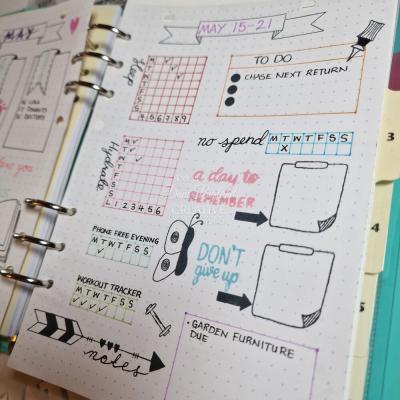 MAY
MAY 15-21
Sleep
M
T
W
4 5 6 7 8 9
TO DO
CHASE NEXT RETURN
no spend
M T W T F S S
X
Hydrate
M
T
W
T
F
S
S
L 1 2 3 4 5 6
a day to
REMEMBER
PHONE FREE EVENING
M T W T F S S
DON'T
give up
WORKOUT TRACKER
M T W T F S S
notes
• GARDEN FURNITURE
DUE
3
4
5